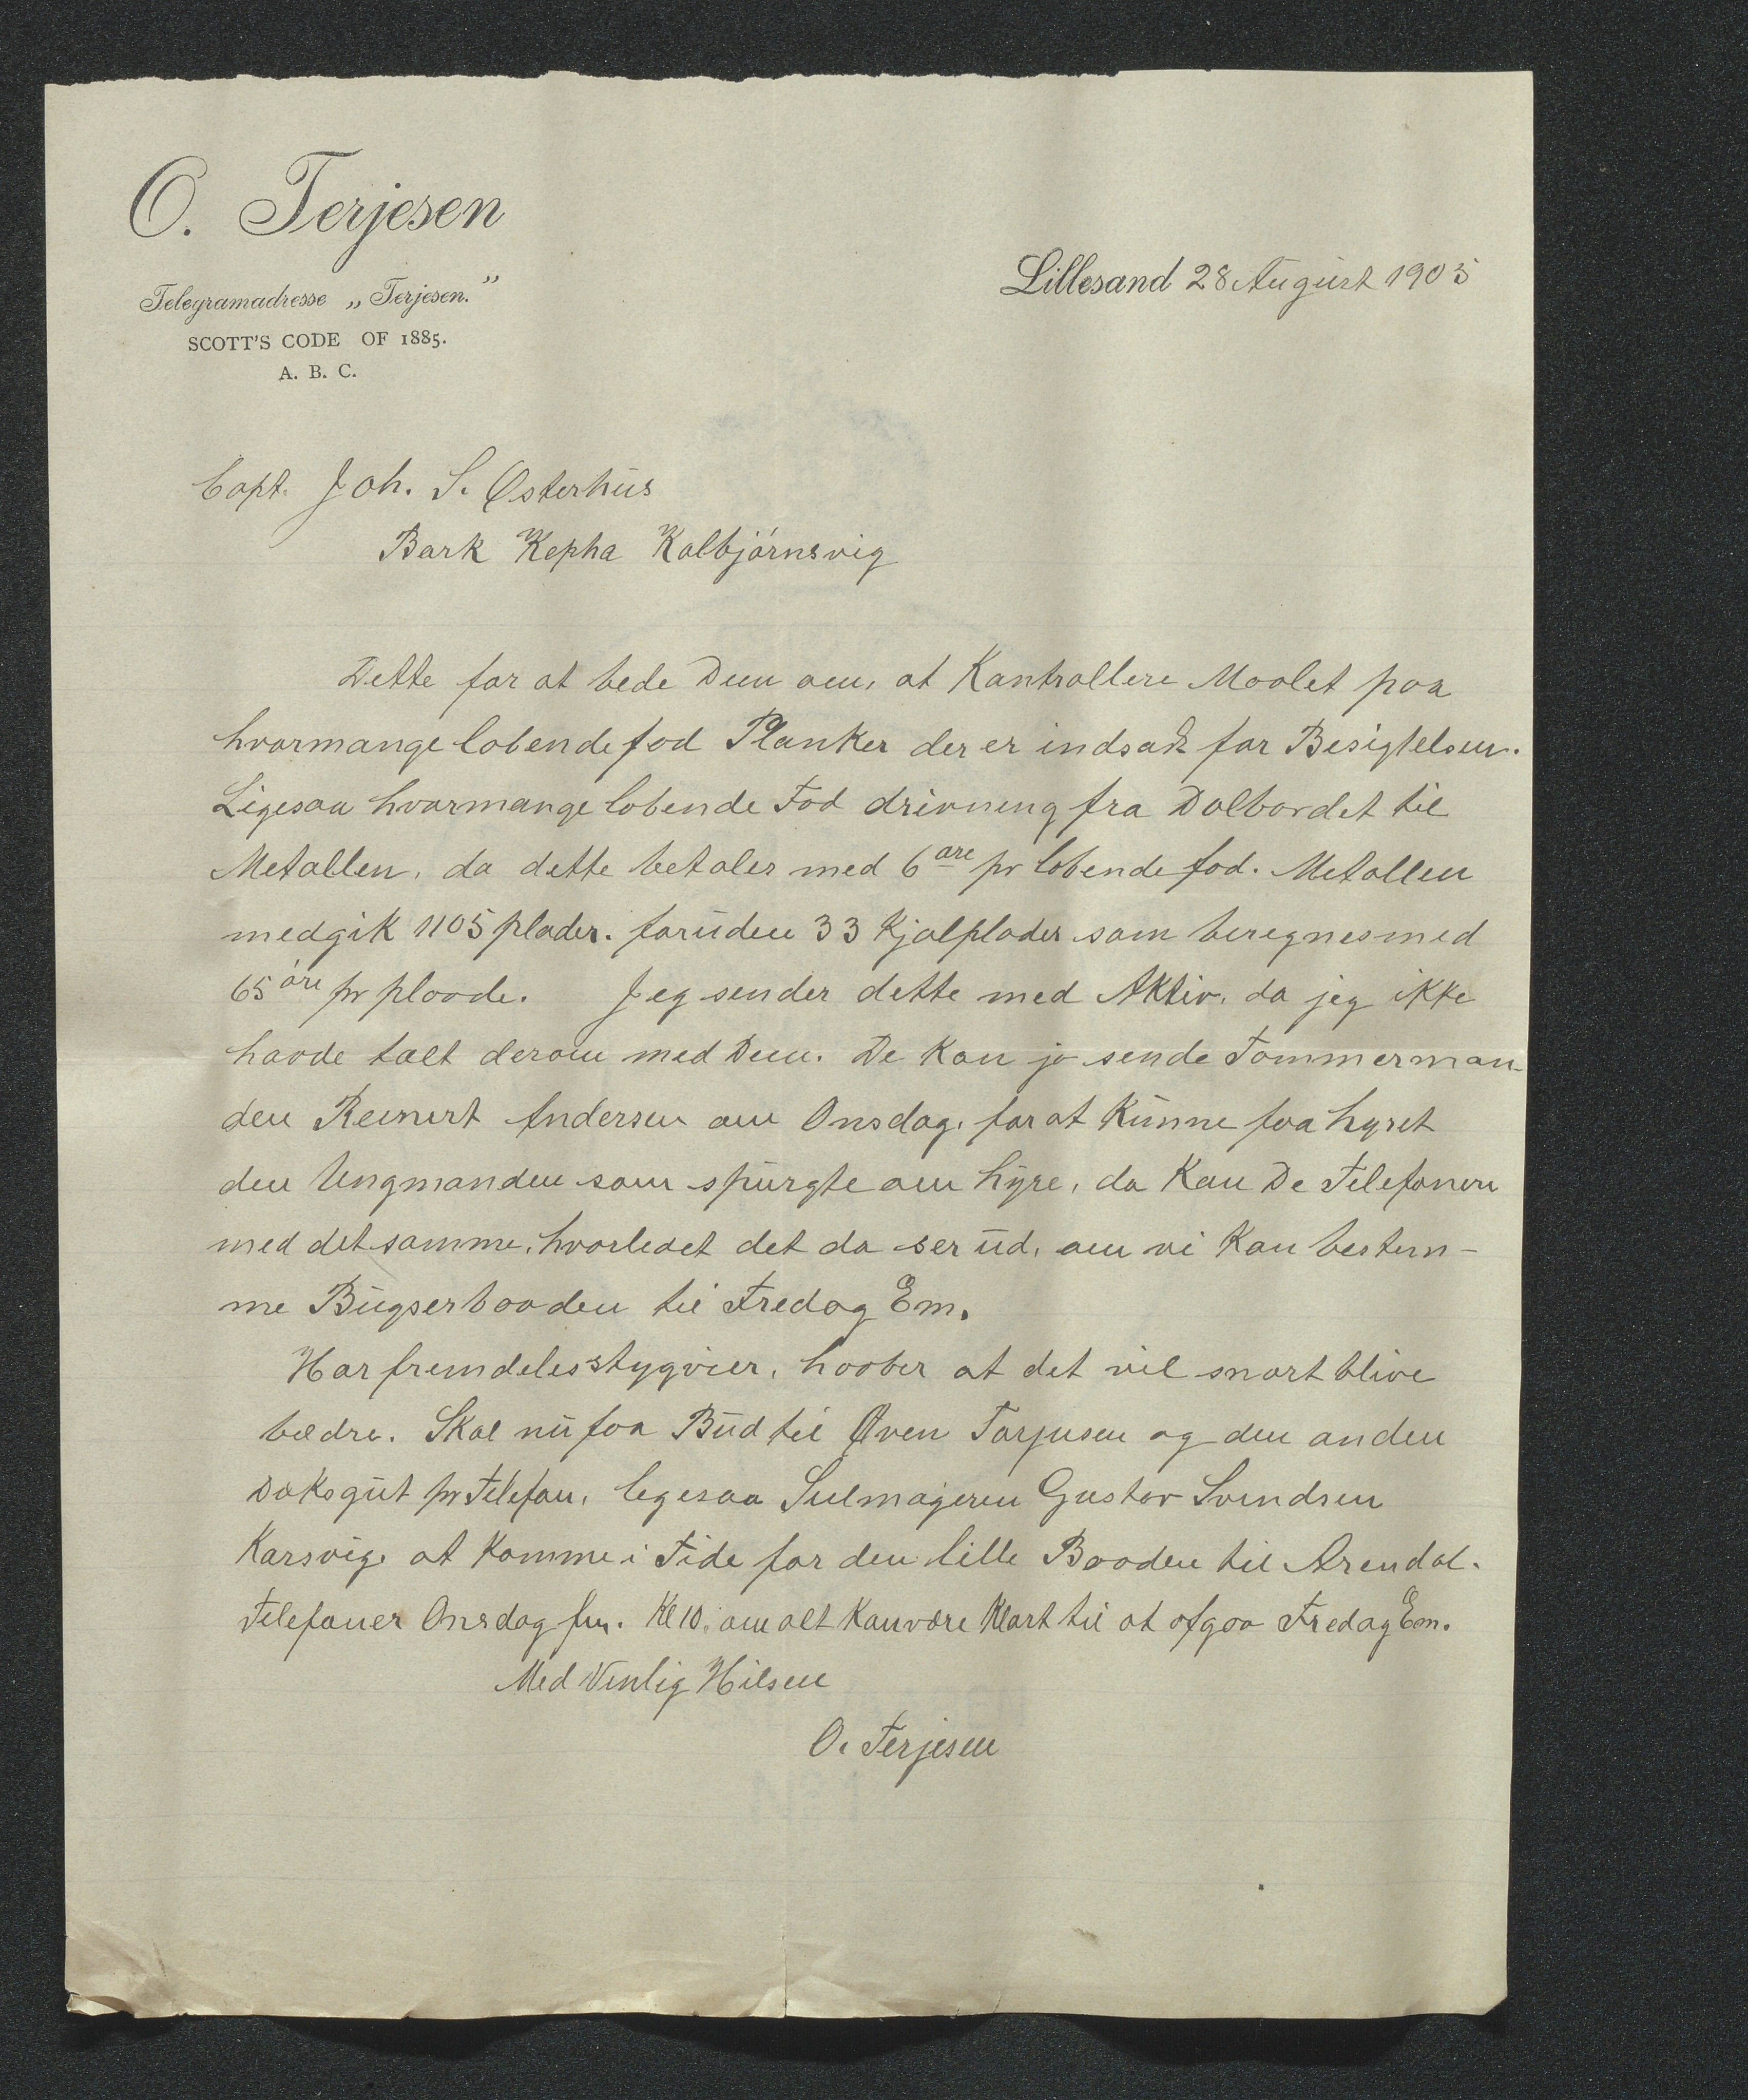 O. Terjesen
Telegramadresse „Terjesen."
SCOTT'S CODE OF 1885.
A. B. C.
Lillesand 28 August 1905
Capt. Joh. S. Østerhus
Bark Kepha Kolbjørnsvig
Dette for at bede Dem om, at Kontrollere Maalet paa
hvormange løbende fod Planker der er indsadt for Besigtelsen.
Ligesaa hvormange løbende Fod drivning fra Dolbordet til
Metallen, da dette betales med 6 øre pr løbende fod. Metallen
medgik 1105 plader. foruden 33 Kjølplader som beregnes med
65 øre pr plaade. Jeg sender dette med Aktiv, da jeg ikke
havde talt derom med Dem. De Kan jo sende Tømmerman-
den Reinert Andersen om Onsdag. for at Kunne faa hyret
den Ungmanden som spurgte om hyre, da Kan De Telefonere
med det samme, hvorledet det da ser ud, om vi Kan bestem-
me Bugserbaaden til Fredag Em.
Har fremdeles stygveir, haaber at det vil snart blive
bedre. Skal nu faa Bud til Øven Torjusen og den anden
Dæksgut pr Telefon, legesaa Seilmageren Gustav Svendsen
Karsvig. at Komme i Tide for den lille Baaden til Arendal.
Telefoner Onsdag fm. Kl 10. om alt Kan være Klart til at afgaa Fredag Em.
Med Venlig Hilsen
O. Terjesen